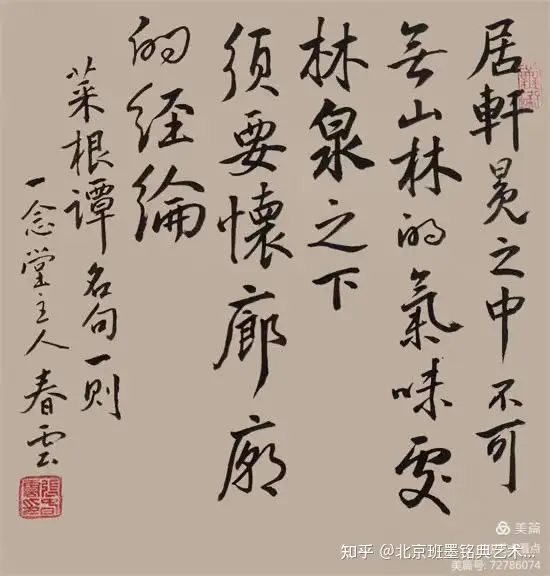 居軒冕之中不可
無山林的氣味處
林泉之下
須要懷廊廟
的经綸
菜根谭名句一则
一念堂主人春雲
美篇
知乎 @北京班墨铭典艺术...
美篇号: 72786074